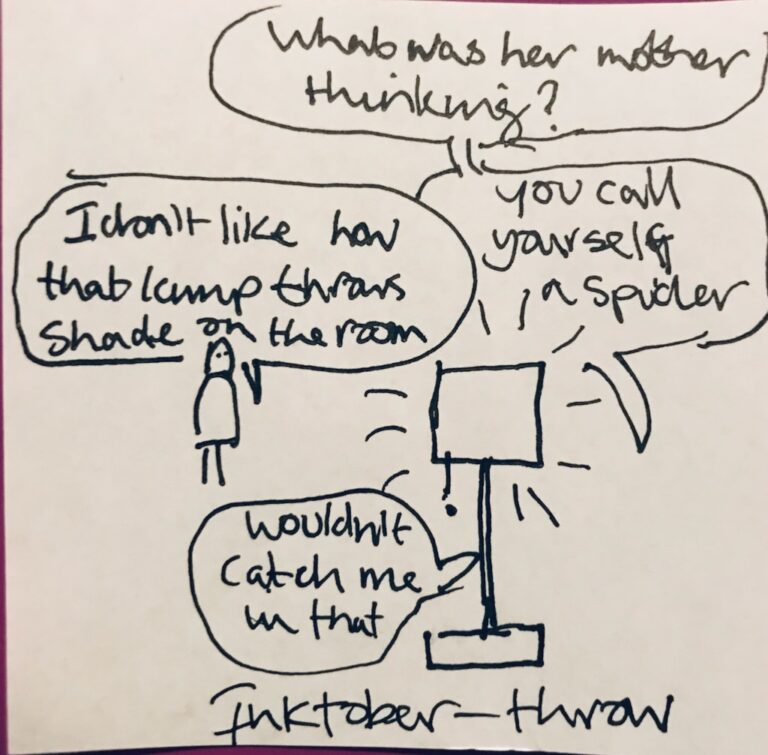 What was her mother
thinking?
I don't like how
that lamp throws
shade on the room
you call
yourself
a spider
wouldn't
catch me
in that
Inktober - throw